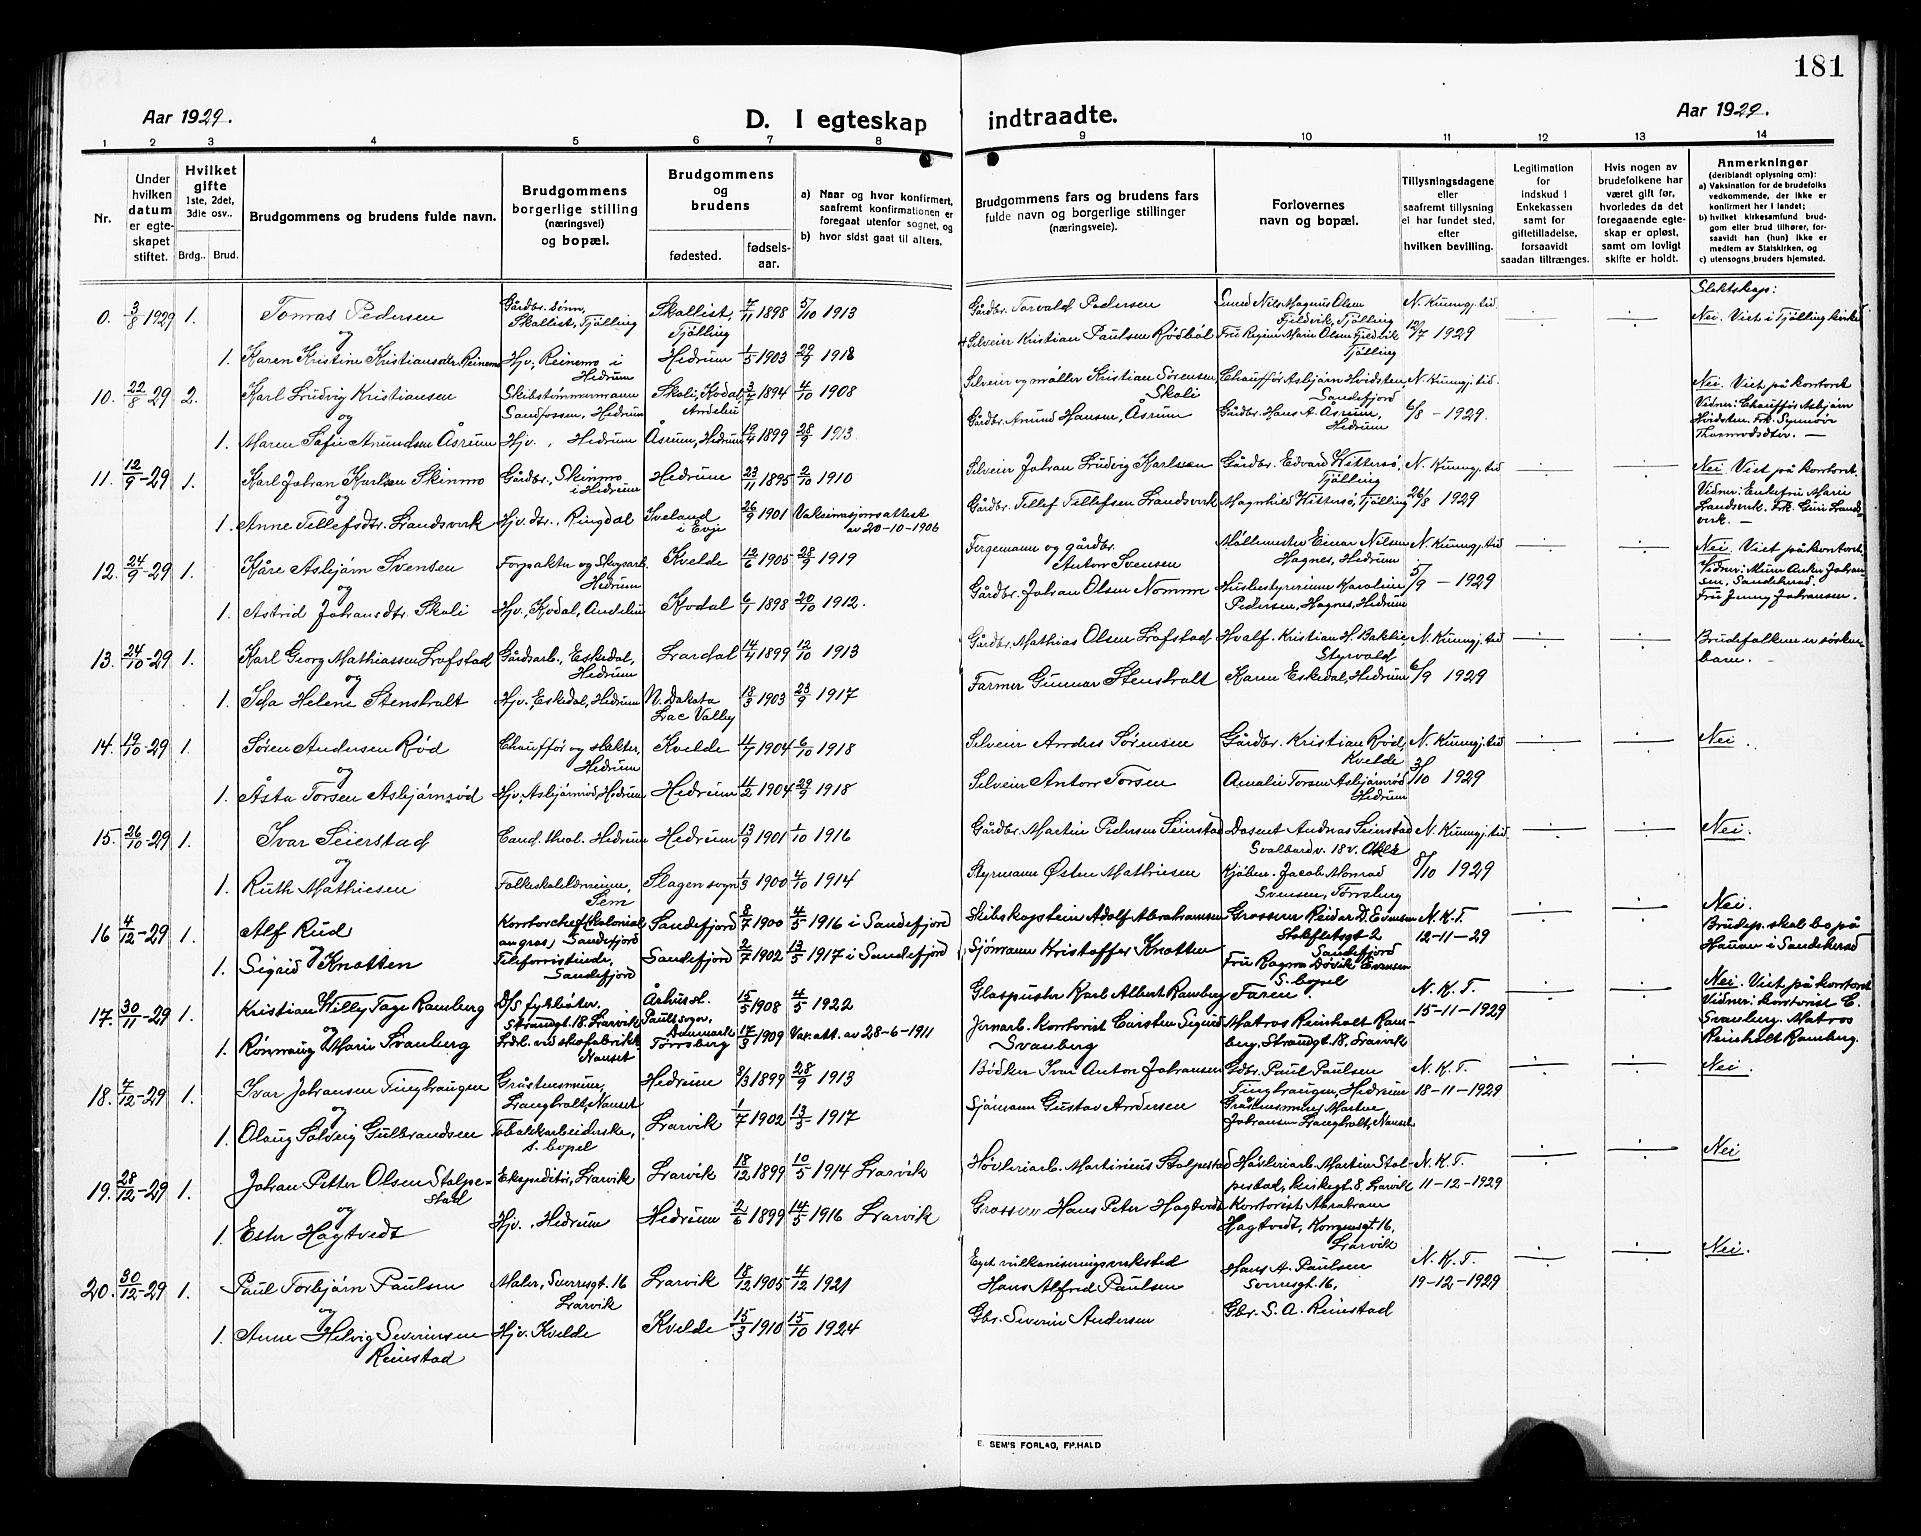 181
Aar 1929.
D. I egteskap indtraadte.
Aar 1929.
1 2 3 4 5 6 7 8 9 10 11 12 13 14
Nr.
Under hvilken datum er egteskapet stiftet.
Hvilket gifte 1ste, 2det, 3die osv..
Brdg.. Brud.
Brudgommens og brudens fulde navn.
Brudgommens borgerlige stilling (næringsvei) og bopæl.
Brudgommens og brudens
fødested.
fødsels-aar.
a) Naar og hvor konfirmert, saafremt konfirmationen er foregaat utenfor sognet, og
b) hvor sidst gaat til alters.
Brudgommens fars og brudens fars fulde navn og borgerlige stillinger (næringsveie).
Forlovernes navn og bopæl.
Tillysningsdagene eller saafremt tillysning ei har fundet sted, efter hvilken bevilling.
Legitimation for indskud i Enkekassen samt for giftetilladelse, forsaavidt saadan tiltrænges.
Hvis nogen av brudefolkene har været gift før, hvorledes da det foregaaende egteskap er opløst, samt om lovligt skifte er holdt.
Anmerkninger (deriblandt oplysning om): a) Vaksination for de brudefolks vedkommende, der ikke er konfirmert her i landet; b) hvilket kirkesamfund brudgom eller brud tilhører, forsaavidt han (hun) ikke er medlem av Statskirken, og c) utensogns bruders hjemsted.
Slektskap:
0. 3/8 1929 1. Tomas Pedersen Gårdbr. sønn, Skallist, Tjölling Skallist, Tjölling 7/11 1898 5/10 1913 Gårdbr. Torvald Pedersen Smed Nils Magnus Olsen Fjeldvik, Tjölling N. Kunngj. tid Nei. Viet i Tjölling kirke
og
1. Karen Kristine Kristiansdtr. Reinemo Hjv. Reinemo i Hedrum Hedrum 1/5 1903 29/9 1918 Selveier Kristian Paulsen Rødbøl Fru Regine Marie Olsen Fjeldvik Tjölling 12/7 1929
10. 22/8-29 2. Karl Ludvig Kristiansen Skibstømmermann Sandfossen, Hedrum Skoli, Kodal, Andebu 3/7 1894 4/10 1908 Selveier og møller Kristian Sørensen, Skoli Chauffør Asbjørn Hvidsten Sandefjord N. Kunngj. tid. Nei. Viet på kontoret Vidner: Chauffør Asbjørn Hvidsten. Frk. Synnøve Thormodsdter. —
og
1. Maren Sofie Amundsen Åsrum Hjv., Hedrum Åsrum, Hedrum 19/4 1899 28/9 1913. Gårdbr. Amund Hansen, Åsrum Gårdbr. Hans A. Åsrum, Hedrum 6/8 - 1929.
11. 12/9-29 1. Karl Johan Karlsen Skinmo Gårdbr., Skinmo i Hedrum Hedrum 23/11 1895 2/10 1910 Selveier Johan Ludvig Karlsen Gårdbr. Edvard Wittersø, Tjölling N. Kunngj. tid Nei. Viet på kontoret. Vidner: Enkefru Marie Landsverk. Frk. Gusi Landsverk. —
og
1. Anne Tellefsdtr. Landsverk Hjv. dtr., Ringdal Iveland i Evje 26/9 1901 Vaksinasjonsattest av 20-10-1906 Gårdbr. Tellef Tellefsen Landsverk Magnhild Wittersø, Tjölling 26/8 1929
12. 24/9-29 1. Kåre Asbjørn Svensen Forpakter og Skogsarb. Hedrum Kvelde 12/6 1905 28/9 1919 Fergemann og gårdbr. Anton Svensen Møllemester Einar Nilsen Hagnes, Hedrum N. Kunngj. tid Nei. Viet på kontoret. Vidner: Murer Anker Johansen, Sandeherad. Fru Jenny Johansen.
og
1. Astrid Johansdtr. Skoli Hjv. Kodal, Andebu Kodal 6/1 1898 20/10 1912. Gårdbr. Johan Olsen Nomme Husbestyrerinne Karoline Pedersen, Hagnes, Hedrum 5/9 - 1929
13. 24/10-29 1. Karl Georg Mathiassen Lofstad Gårdsarb., Eskedal, Hedrum Lardal 14/4 1899 12/10 1913 Gårdbr. Mathias Olsen Lofstad Hvalf. Kristian H. Bakke, Styrvold N. Kunngj. tid Brudefolkene er søskenbarn. —
og
1. Ida Helene Stensholt Hjv., Eskedal, Hedrum N. Dakota Lac Valley 18/3 1903 23/9 1917 Farmer Gunnar Stensholt Karen Eskedal, Hedrum 6/9 1929
14. 19/10-29 1. Søren Andersen Rød Chauffør og slakter, Hedrum Kvelde 11/7 1904 6/10 1918 Selveier Anders Sørensen Gårdbr. Kristian Rød, Kvelde N. Kunngj. tid Nei.
og
1. Åsta Torsen Asbjørnrød Hjv. Asbjørnrød, Hedrum Hedrum 4/2 1904 29/9 1918 Selveier Anton Torsen Amalie Torsen Asbjørnrød Hedrum 3/10 1929
15. 26/10-29 1. Ivar Seierstad Cand. theol. Hedrum Hedrum 13/9 1901 1/10 1916 Gårdbr. Martin Pedersen Seierstad Dosent Andreas Seierstad Svalbardv. 18 v. Aker N. Kunngj. tid. Nei.
og
1. Ruth Mathiesen Folkeskolelærerinne, Sem Slagen sogn 1/3 1900 4/10 1914 Styrmann Østen Mathiesen Kjøbm. Jacob Monrad Svensen, Tønsberg 8/10 1929
16 4/12-29 1. Alf Rud Kontorchef (kolonial engros) Sandefjord Sandefjord 8/7 1900 4/5 1916 i Sandefjord Skibskaptein Adolf Abrahamsen Grosserer Reidar D. Evensen Stokfletsgt 2 Sandefjord N. K. T. 12-11-29 Nei. Brudep. skal bo på Hauan i Sandeherad
og
1. Sigrid Knatten Telefonistinde, Sandefjord Sandefjord 2/7 1902 13/5 1917 i Sandefjord Sjömann Kristoffer Knatten Fru Ragna Døvik Evensen S. bopel
17. 30/11-29 1. Kristian Willy Tage Ramberg D/S fyrbøter, Strandgt. 18. Larvik Århus st. Pauls sogn, Danmark 15/5 1908 4/5 1922 Glaspuster Karl Albert Ramberg Faren. N. K. T. 15-11-1929 Nei. Viet på kontoret Vidner: kontorist C. Svanberg. Matros Reinholt Ramberg.
og
1. Rønnaug Marie Svanberg Lrdrl. vid skofabrikk Nanset Tønsberg 17/3 1909 Vak. att. av 28-6-1911 Jernarb. kontorist Carsten Sigurd Svanberg Matros Reinholt Ramberg. Strandgt 18, Larvik
18. 7/12-29 1. Ivar Johansen Tinghaugen Gråstensmurer, Langholt, Nanset Hedrum 8/3 1899 28/9 1913 Bödker Ivar Anton Johansen Gdbr. Paul Paulsen Tinghaugen, Hedrum N. K. T. 18-11-1929 Nei.
og
1. Olaug Solveig Gulbrandsen Tobakkarbeiderske, s. bopel Larvik 1/7 1902 13/5 1917 Sjömann Gustav Andersen Gråstensmurer Martin Johansen Langholt, Nanset
19. 28/12-29 1. Johan Petter Olsen Stolpestad Ekspeditör, Larvik Larvik 18/12 1899 10/5 1914 Larvik Høvleriarb. Martinius Stolpestad Høvleriarb. Martin Stolpestad, Kirkegt 8. Larvik N. K. T. 11-12-1929 Nei
og
1. Ester Hagtvedt Hjv., Hedrum Hedrum 2/6 1899 14/5 1916 Larvik Grosserer Hans Peter Hagtvedt Kontorist Abraham Hagtvedt, Kongensgt. 16, Larvik
20. 30/12-29 1. Paul Torbjørn Paulsen Maler, Sverresgt. 16 Larvik Larvik 18/12 1905 4/12 1921 Eget vulkaniseringsverksted Hans Alfred Paulsen Hans A. Paulsen Sverresgt. 16, N. K. T. 19-12-1929 Nei.
og
1. Anne Helvig Severinsen Reinstad Hjv. Kvelde Kvelde 15/3 1910 15/10 1924 Gbr. Severin Andersen Gbr. S. A. Reinstad
E. SEM'S FORLAG, FR.HALD